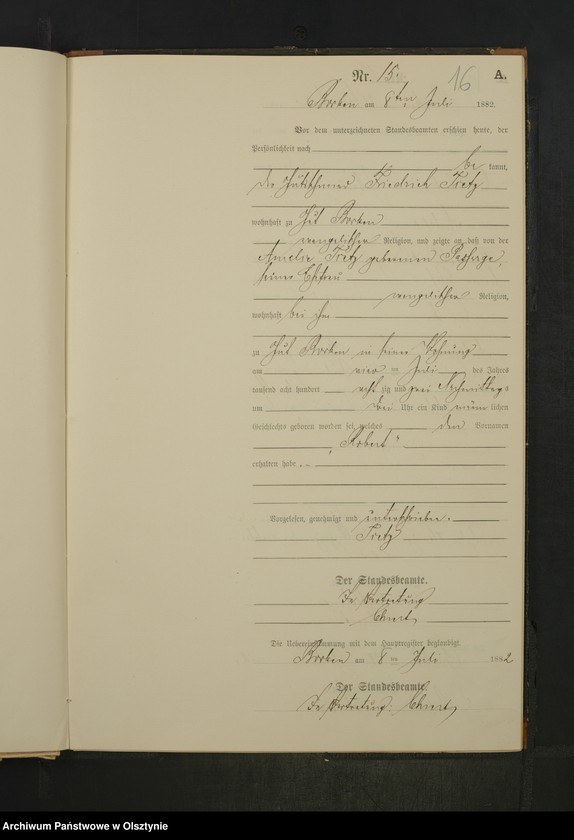 Nr. 15. 16 A.
Borken am 8ten Juli 1882.
Vor dem unterzeichneten Standesbeamten erschien heute, der
Persönlichkeit nach
be kannt,
der Friedrich Fretz
wohnhaft zu Gut Borken
evangelischer Religion, und zeigte an, daß von der
Amelie Fretz geborenen
seiner Ehefrau
evangelischer Religion,
wohnhaft bei ihm
zu Gut Borken in seiner Wohnung
am vier ten Juli des Jahres
tausend acht hundert acht zig und zwei Nachmittags
um drei Uhr ein Kind männ lichen
Geschlechts geboren worden sei, welches den Vornamen
„Robert“
erhalten habe.
Vorgelesen, genehmigt und unterschrieben.
Fretz
Der Standesbeamte.
In Vertretung
Die Uebereinstimmung mit dem Hauptregister beglaubigt.
Borken am 8 ten Juli 1882
Der Standesbeamte.
In Vertretung.
Archiwum Państwowe w Olsztynie